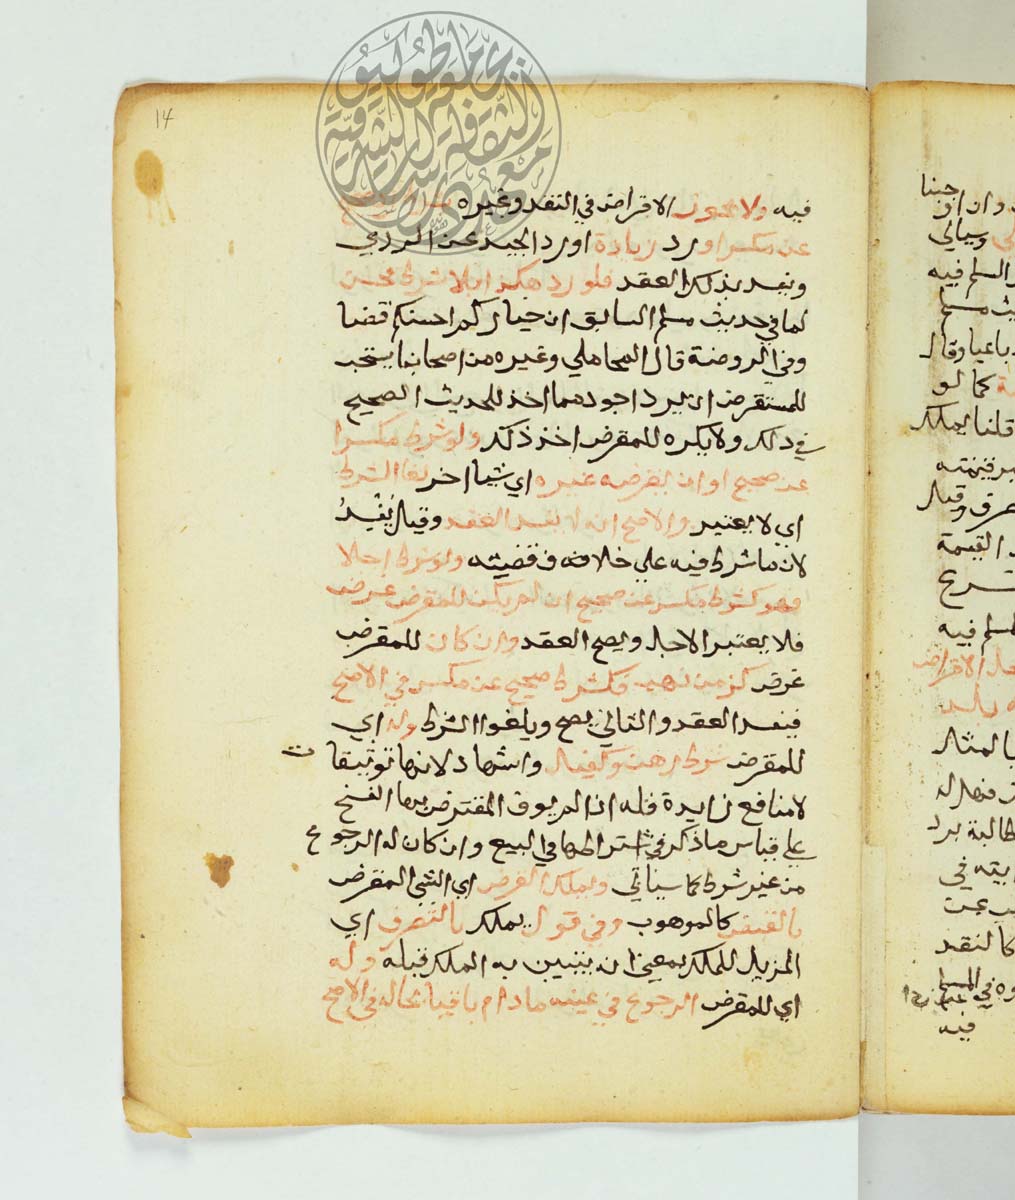 14
فيه ولا يجوز الاقراض في النقد وغيره بشرط رد صحيح
عن مكسر او رد زيادة او رد الجيد عن الردي
ويفسد بذلك العقد فلو رد هكذا بلا شرط فحسن
لما في حديث مسلم السابق ان خياركم احسنكم قضا
وفي الروضة قال المحاملي وغيره من اصحابنا يستحب
للمستقرض ان يرد اجود مما اخذ للحديث الصحيح
في ذلك ولا يكره للمقرض اخذ ذلك ولو شرط مكسرا
عن صحيح او ان يقرضه غيره اي شيا اخر لغا الشرط
اي لا يعتبر والاصح انه لا يفسد العقد وقيل يُفْسِدُ
لان ما شرط فيه علي خلاف قضيته ولو شرط اجلا
فهو كشرط مكسر عن صحيح ان لم يكن للمقرض غرض
فلا يعتبر الاجل ويصح العقد وان كان للمقرض
غرض كزمن نهب فكشرط صحيح عن مكسر في الاصح
فيفسد العقد والثاني يصح ويلغوا الشرط وله اي
للمقرض شرط رهن وكفيل واشهاد لانها توثيقات
لا منافع زايدة فله ان لم يوف المقترض بها الفسخ
علي قياس ما ذكر في اشتراطها في البيع وان كان له الرجوع
من غير شرط كما سياتي ويملك القرض اي الشي المقرض
بالقبض كالموهوب وفي قول يملك بالتصرف اي
المزيل للملك بمعني انه يتبين به الملك قبله وله
اي للمقرض الرجوع في عينه ما دام باقيا بحاله في الاصح